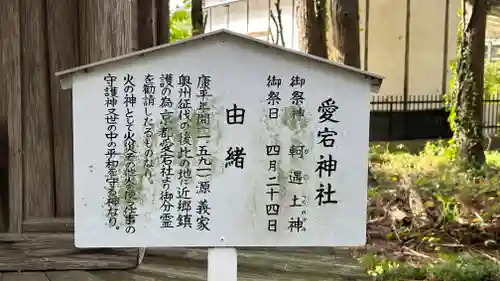 愛宕神社
御祭神 軻遇土神
御祭日 四月二十四日
由緒
康平年間一五九一源義家
奥州征伐の後此の地に近郷鎮
護の為京都愛宕社より御分霊
を勧請したるものなり。
火の神として火災予の他火を仕事の
守護神又世の中の平和を守る神なり。